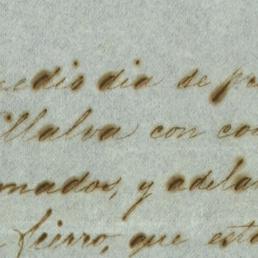 medio dia de
illalva con
mados, y adela
fierro, que est